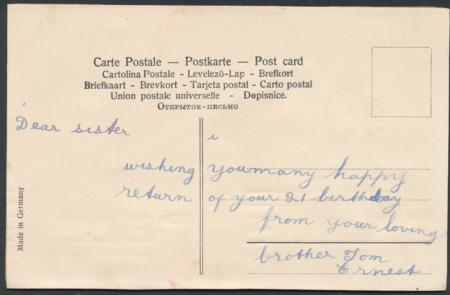 Carte Postale — Postkarte — Post card
Cartolina Postale - Levelező-Lap - Brefkort
Briefkaart - Brevkort - Tarjeta postal - Carto postal
Union postale universelle - Dopisnice.
Открытое-письмо
Dear sister
i
wishing you many happy
return of your 21 birthday
from your loving
brother Tom
Ernest
Made in Germany